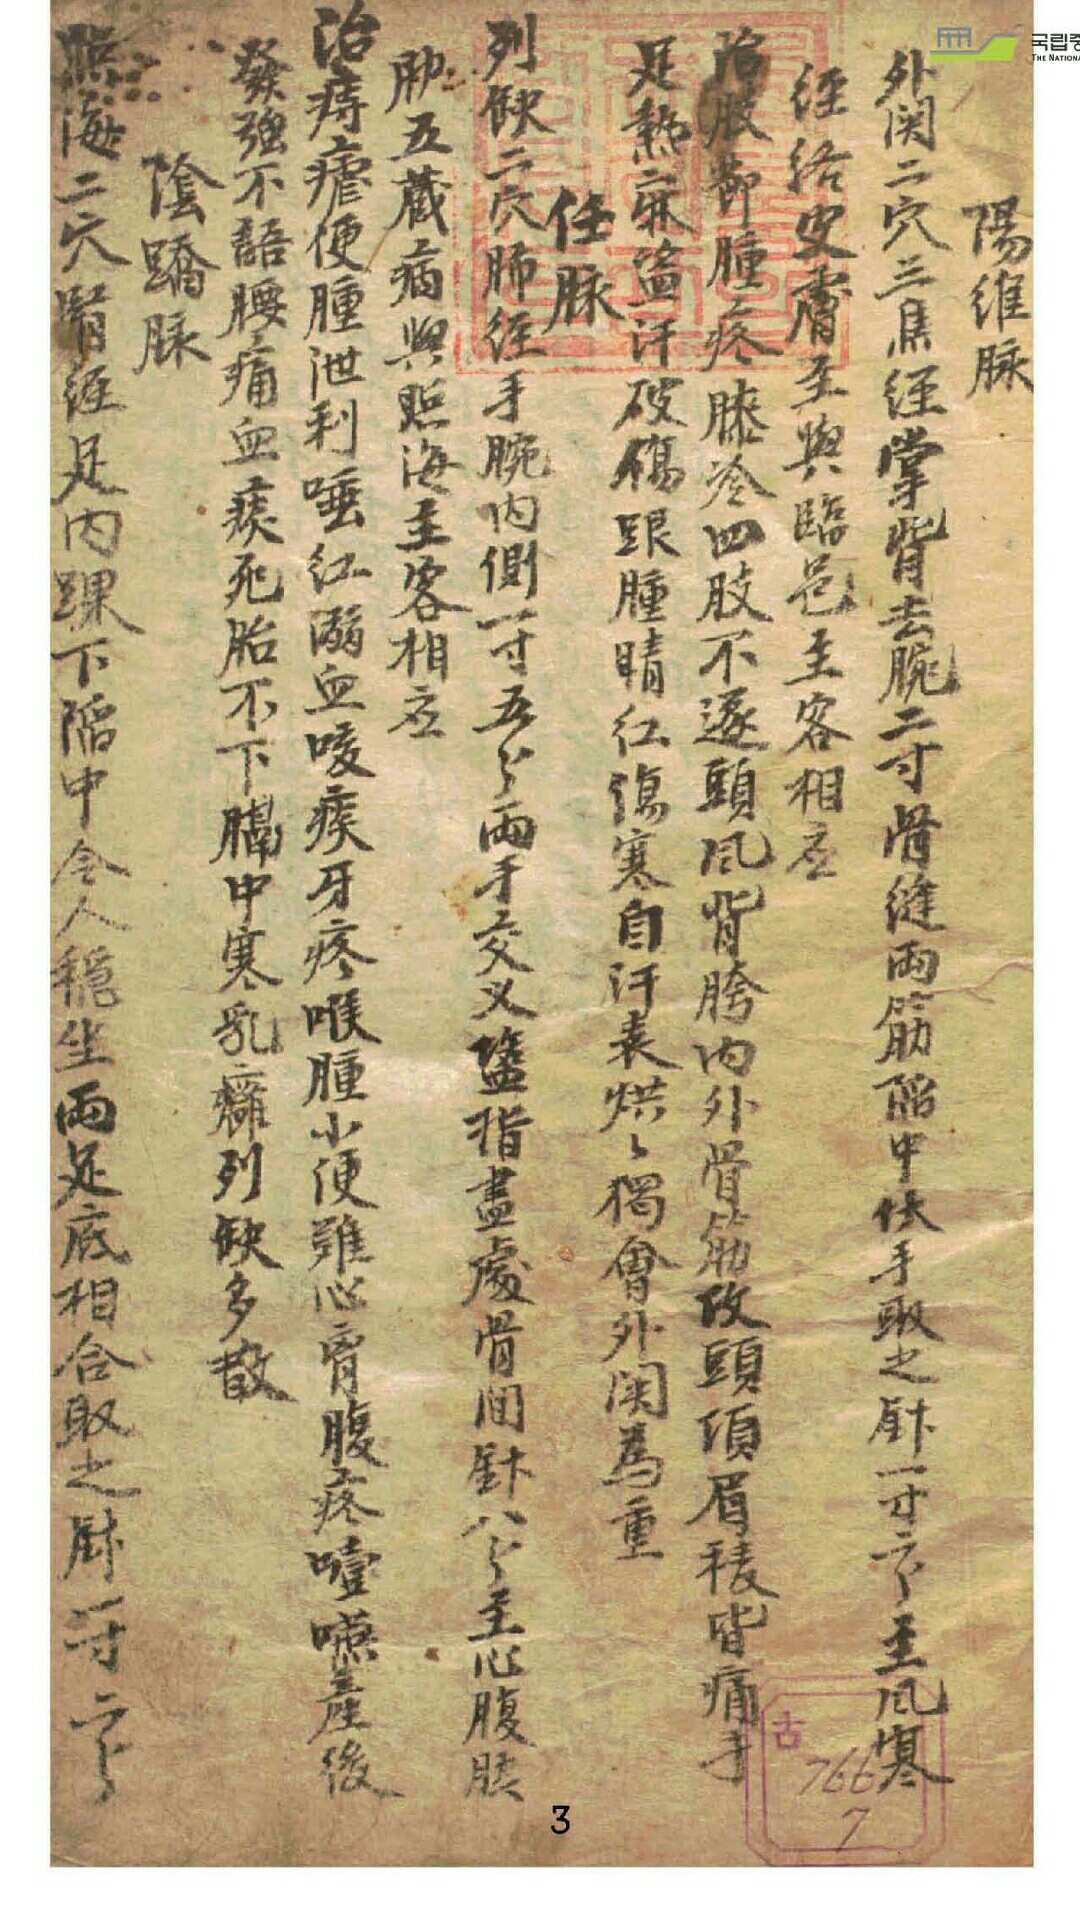 陽維脉
外関二穴三焦経掌背去腕二寸骨縫両筋陷中伏手取之針一寸二分主風寒
経絡皮膚主與臨邑主客相应
治肢節腫疼膝冷四肢不遂頭風背胯内外骨筋攻頭項眉稜皆痛手
足熱麻盗汗破傷跟腫睛紅傷寒自汗表烘〻獨會外関為重
任脉
列缺二穴肺経手腕内側一寸五分両手交叉盬指盡處骨間針八分主心腹脇
肋五蔵病與照海主客相应
治痔瘧便腫泄利唾紅溺血咳痰牙疼喉腫小便難心胷腹疼噎嚥産後
發強不語腰痛血疾死胎不下膈中寒乳癰列缺多散
陰蹻脉
照海二穴腎経足内踝下陷中令人穏坐両足底相合取之針一寸二分
古
766
7
3
국립중
THE NATIONA